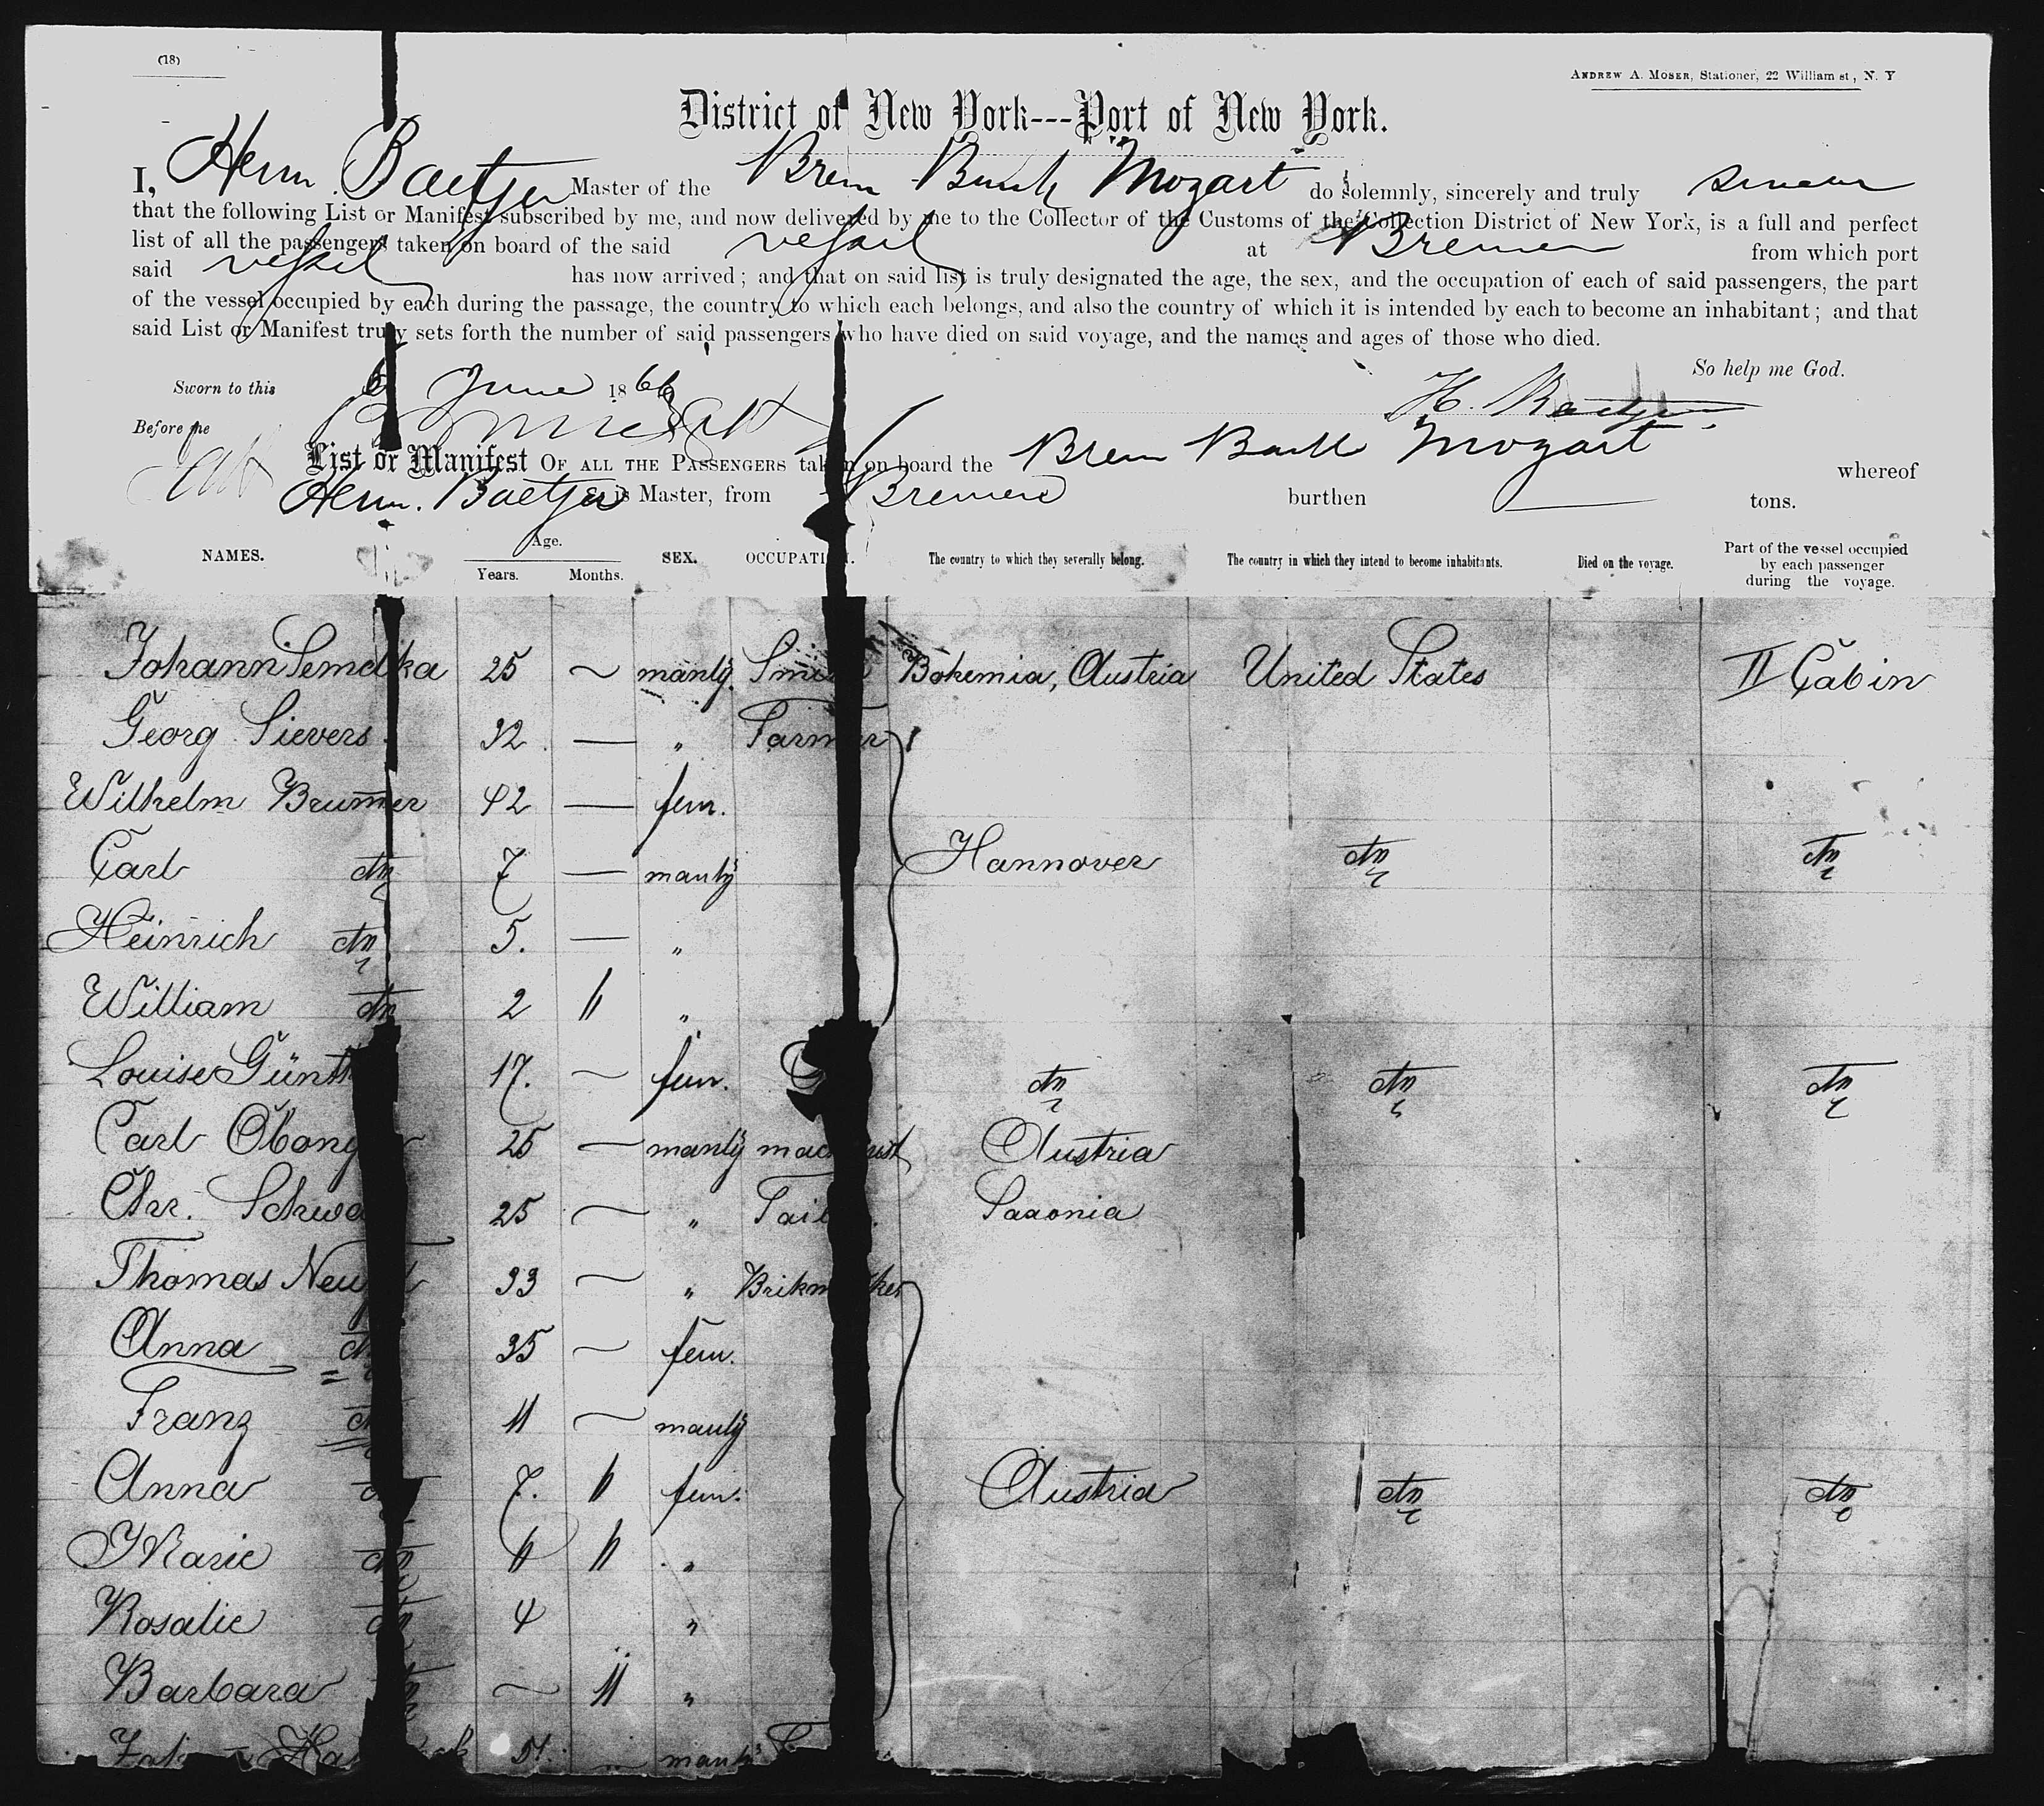 (18)
ANDREW A. MOSER, Stationer, 22 William st, N. Y
District of New York---Port of New York.
I, Herm. Baetjer Master of the Brem Bark Mozart do solemnly, sincerely and truly swear
that the following List or Manifest subscribed by me, and now delivered by me to the Collector of the Customs of the Collection District of New York, is a full and perfect
list of all the passengers taken on board of the said vessel at Bremen from which port
said vessel has now arrived; and that on said list is truly designated the age, the sex, and the occupation of each of said passengers, the part
of the vessel occupied by each during the passage, the country to which each belongs, and also the country of which it is intended by each to become an inhabitant; and that
said List or Manifest truly sets forth the number of said passengers who have died on said voyage, and the names and ages of those who died.
So help me God.
Sworn to this 6 June 1866 H. Baetjer
Before me
List or Manifest OF ALL THE PASSENGERS taken on board the Brem Bark Mozart whereof
Herm. Baetjer is Master, from Bremen burthen tons.
NAMES. Age. Years. Months. SEX. OCCUPATI . The country to which they severally belong. The country in which they intend to become inhabitants. Died on the voyage. Part of the vessel occupied by each passenger during the voyage.
Johann 25 ~ manly. Bohemia, Austria United States II Cabin
Georg Sievers 32 — „ Farmer
Wilhelm Brummer 42 — fem.
Carl do 7 — manly Hannover do do
Heinrich do 5. — „
William do 2 11 „
Louise Günth 17. ~ fem. do do do
Carl 25 — manly machinist Austria
Chr. Schwa 25 ~ „ Tail . Saxonia
Thomas Neu 33 ~ „ Brikmaker
Anna do 35 ~ fem.
Franz do 11 ~ manly
Anna do 7. 6 fem. Austria do do
Marie do 6 11 „
Rosalie do 4 „
Barbara do ~ 11 „
51. manly